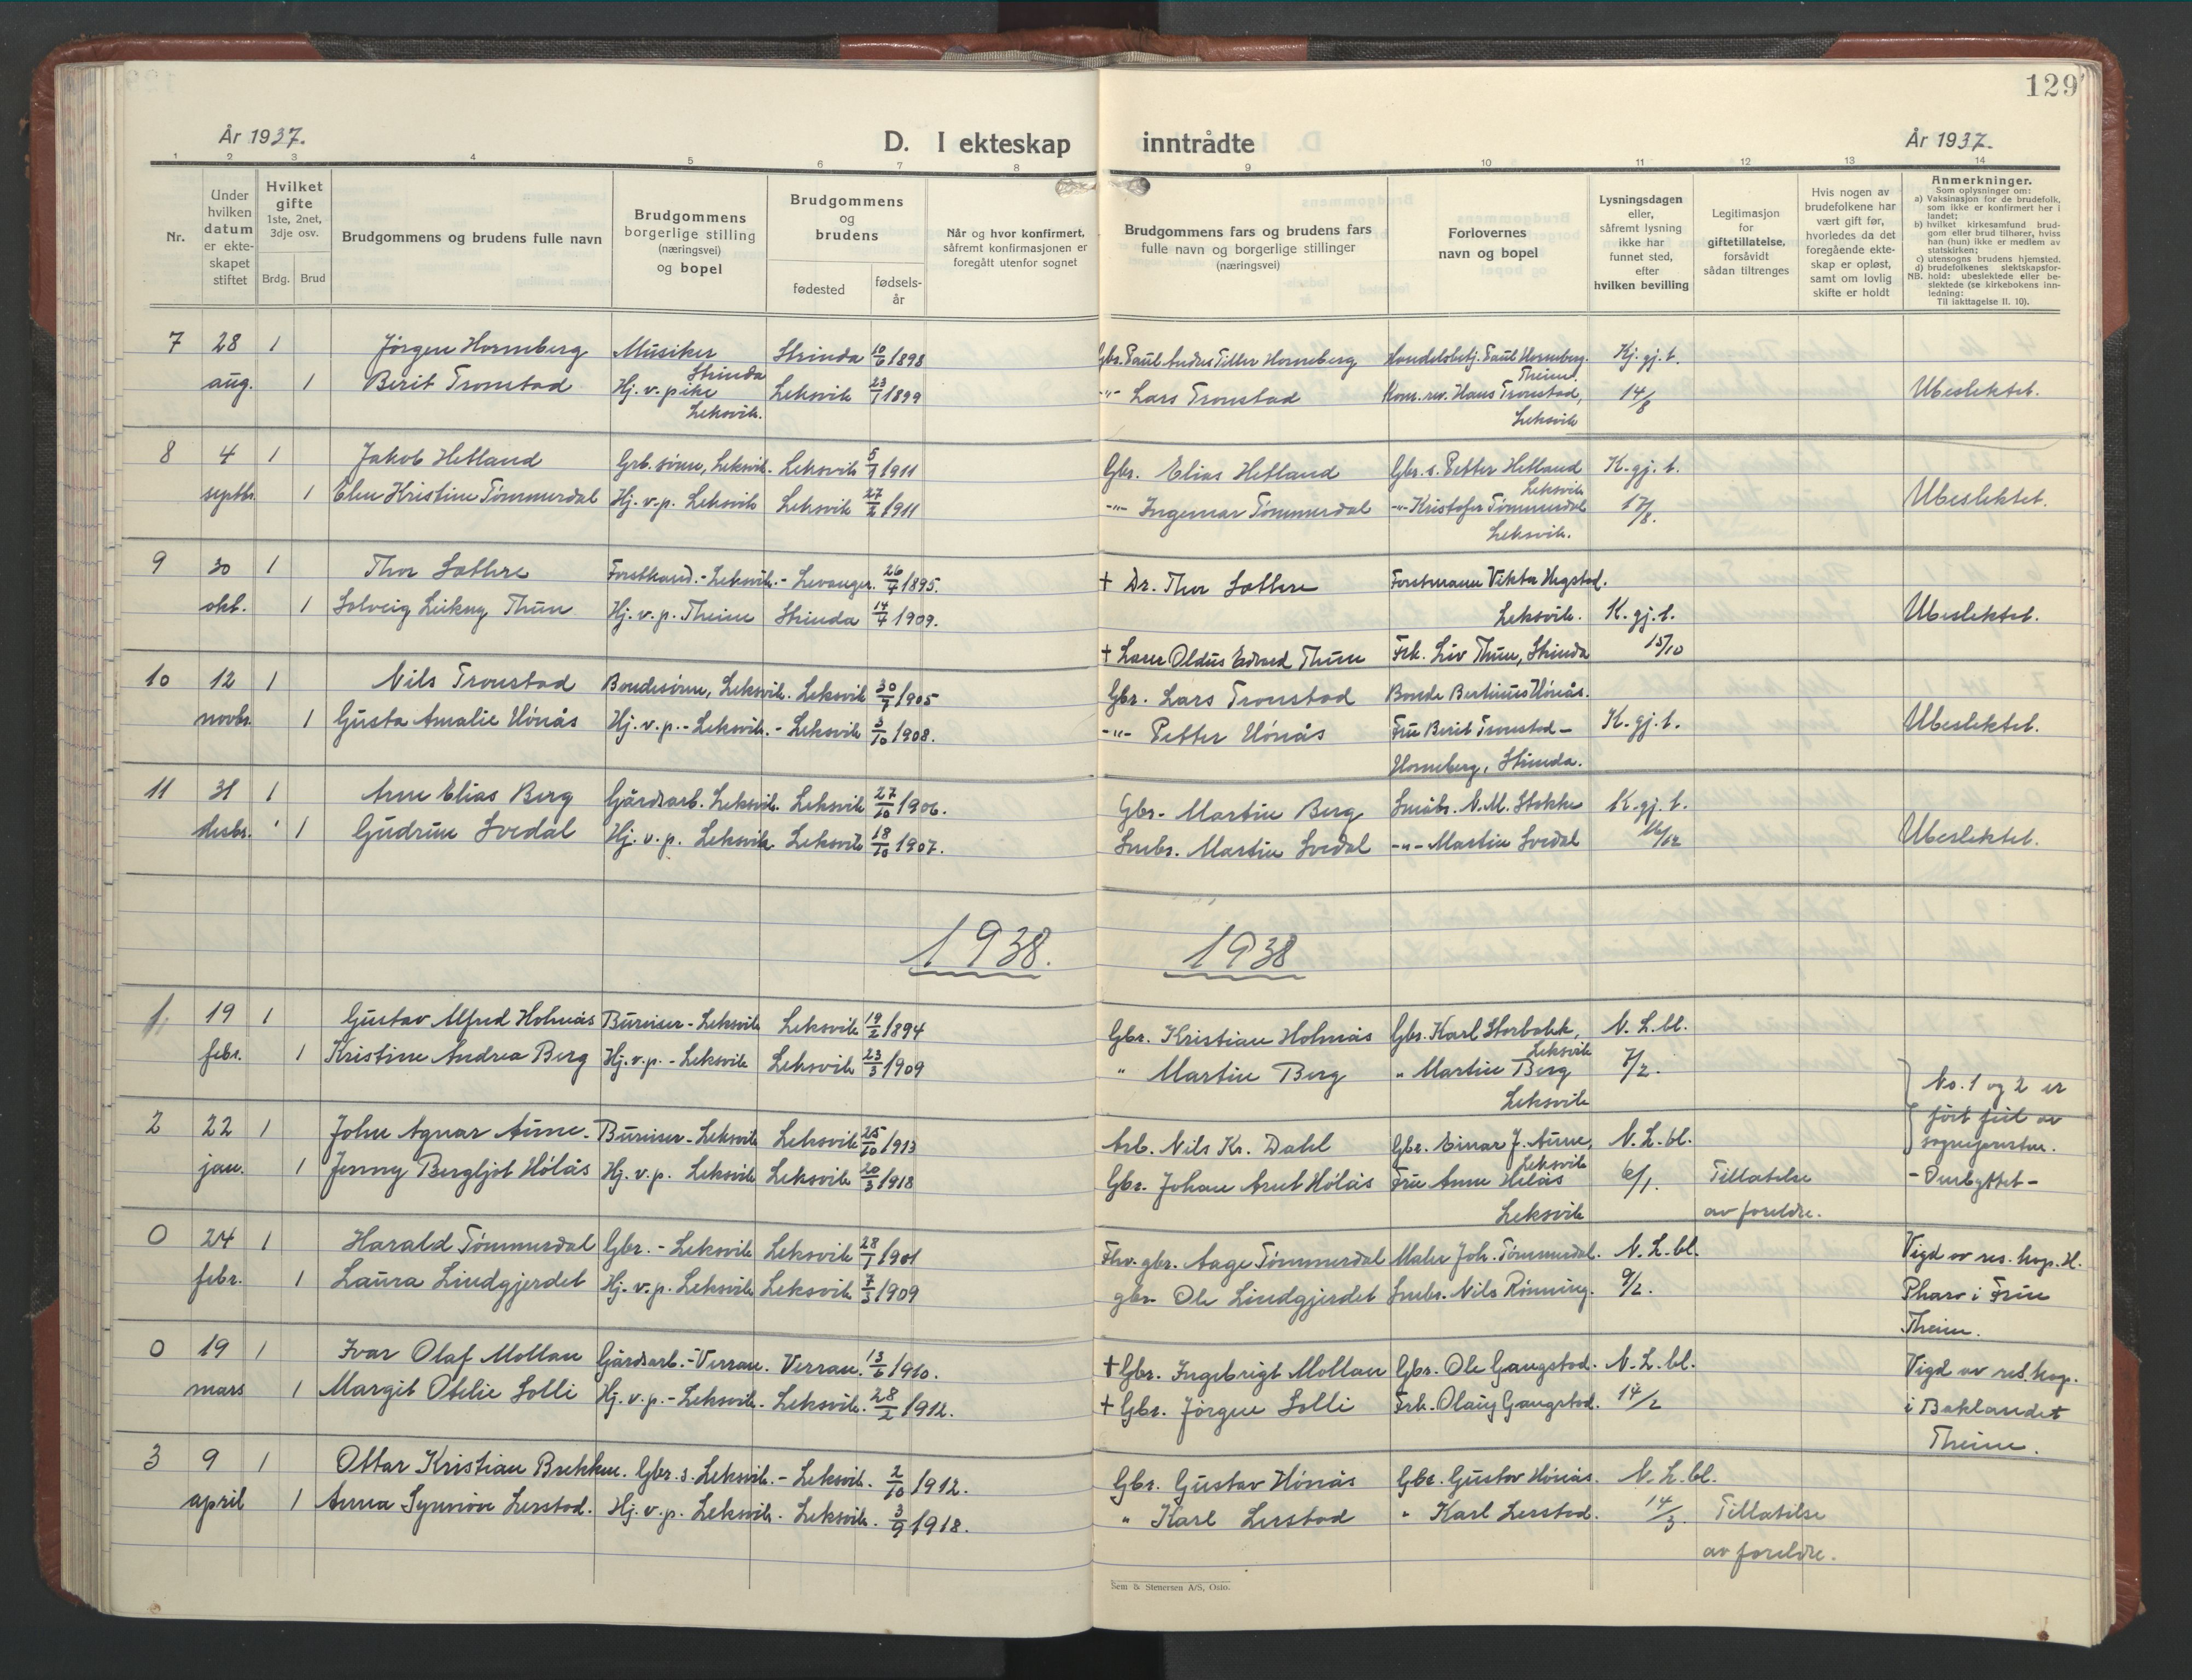 129
År 1937.
D. I ekteskap inntrådte
År 1937.
1 2 3 4 5 6 7 8 9 10 11 12 13 14
Nr.
Under hvilken datum er ekte-skapet stiftet
Hvilket gifte 1ste, 2net, 3dje osv.
Brdg. Brud
Brudgommens og brudens fulle navn
Brudgommens borgerlige stilling (næringsvei) og bopel
Brudgommens og brudens
fødested
fødsels-år
Når og hvor konfirmert, såfremt konfirmasjonen er foregått utenfor sognet
Brudgommens fars og brudens fars fulle navn og borgerlige stillinger (næringsvei)
Forlovernes navn og bopel
Lysningsdagen eller, såfremt lysning ikke har funnet sted, efter hvilken bevilling
Legitimasjon for giftetillatelse, forsåvidt sådan tiltrenges
Hvis nogen av brudefolkene har vært gift før, hvorledes da det foregående ekte-skap er opløst, samt om lovlig skifte er holdt
Anmerkninger.
Som oplysninger om:
a) Vaksinasjon for de brudefolk, som ikke er konfirmert her i landet;
b) hvilket kirkesamfund brud-gom eller brud tilhører, hviss han (hun) ikke er medlem av statskirken;
c) utensogns brudens hjemsted.
d) brudefolkenes slektskapsfor-
NB. hold: ubeslektede eller be-slektede (se kirkebokens inn-ledning:
Til iakttagelse II. 10).
7 28 1 Jörgen Horneberg Musiker Strinda Strinda 10/6 1898 Gbr. Paul Andres Tiller Horneberg Handelsbetj. Paul Horneberg. Theim. Kj. gj. t.
aug. 1 Berit Tronstad Hj. v. pike Leksvik. Leksvik 23/1 1899 -"- Lars Tronstad Kom. rev. Hans Tronstad, Leksvik 14/8 Ubeslektet.
8 4 1 Jakob Hetland Grb. sönn, Leksvik. Leksvik 5/7 1911 Gbr. Elias Hetland Gbr. s. Petter Hetland Leksvik K. gj. t.
septbr. 1 Elen Kristine Tömmerdal Hj. v. p. Leksvik Leksvik 27/2 1911 -"- Ingemar Tömmerdal -"- Kristofer Tömmerdal Leksvik. 17/8. Ubeslektet.
9 30 1 Thor Sæthre Forstkand. - Leksvik. - Levanger. 26/7 1895. † Dr. Thor Sæthre Forstmann Viktor Hegstad. Leksvik.
okt. 1 Solveig Leikny Thun Hj. v. p. Theim Strinda 14/4 1909. K. gj. t. Ubeslektet.
† Lars Oldus Edvard Thun Frk. Liv Thun, Strinda 15/10
10 12 1 Nils Tronstad Bondesönn, Leksvik. Leksvik 30/9 1905 Gbr. Lars Tronstad Bonde Bertinus Hönås.
novbr. 1 Gusta Amalie Hönås Hj. v. p. - Leksvik. - Leksvik 5/10 1908. -"- Petter Hönås Fru Berit Tronstad - Horneberg, Strinda. K. gj. t. Ubeslektet.
11 31 1 Arne Elias Berg Gårdsarb. Leksvik. Leksvik 27/10 1906. Gbr. Martin Berg Småbr. N. M. Stokke K. gj. t.
desbr. 1 Gudrun Svedal Hj. v. p. Leksvik Leksvik 18/10 1907. Smbr. Martin Svedal -"- Martin Svedal 16/12 Ubeslektet.
1938. 1938
1 19 1 Gustav Alfred Holmås Bureiser - Leksvik Leksvik 19/2 1894 Gbr. Kristian Holmås Gbr. Karl Storbakk, Leksvik N. L. bl.
febr. 1 Kristine Andrea Berg Hj. v. p. - Leksvik Leksvik 23/3 1909 " Martin Berg " Martin Berg Leksvik 7/2. No. 1 og 2 er
2 22 1 John Agnar Aune. Bureiser - Leksvik Leksvik 25/10 1913 Arb. Nils Kr. Dahl Gbr. Einar J. Aune, Leksvik N. L. bl. fört feil av sognepresten.
jan. 1 Jenny Bergljot Hölås Hj. v. p. Leksvik Leksvik 20/3 1918 Gbr. Johan Arnt Hölås Fru Anne Hölås Leksvik 6/1. Tillatelse av foreldre. - Ombyttet -
0 24 1 Harald Tömmerdal Gbr. - Leksvik Leksvik 28/1 1901 Fhv. gbr. Aage Tömmerdal Maler Joh. Tömmerdal. N. L. bl. Vigd av res. kap. H.
febr. 1 Laura Lindgjerdet Hj. v. p. Leksvik Leksvik 7/3 1909 gbr. Ole Lindgjerdet Smbr. Nils Rönning. 9/2. Pharo i Frue Theim.
0 19 1 Ivar Olaf Mollan Gårdsarb. - Verran. Verran. 13/6 1910. † Gbr. Ingebrigt Mollan Gbr. Ole Gangstad. N. L. bl. Vigd av res. kap.
mars 1 Margit Otelie Solli Hj. v. p. - Leksvik. - Leksvik. 28/2 1912. † Gbr. Jörgen Solli Frk. Olaug Gangstad. 14/2 i Baklandet Theim.
3 9 1 Ottar Kristian Brekken. Gbr. s. Leksvik. - Leksvik. 2/10 1912. Gbr. Gustav Hönås Gbr. Gustav Hönås. N. L. bl.
april 1 Anna Synnöve Lerstad. Hj. v. p. Leksvik. Leksvik. 3/9 1918. " Karl Lerstad " Karl Lerstad. 14/3. Tillatelse av foreldre.
Sem & Stenersen A/S, Oslo.